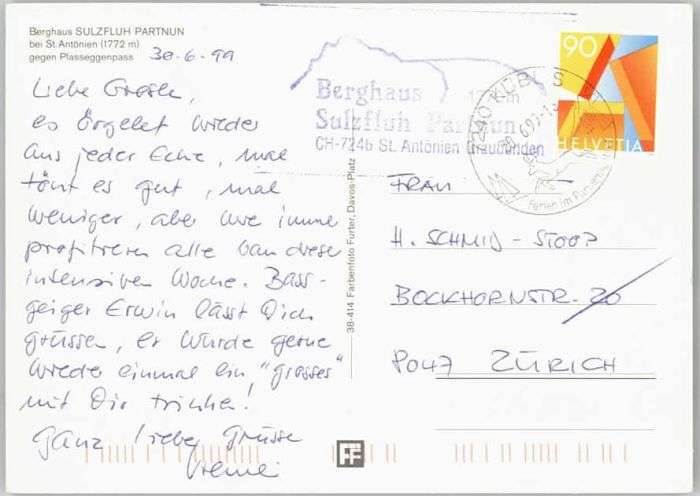 Berghaus SULZFLUH PARTNUN
bei St. Antönien (1772 m)
gegen Plasseggenpass
30-6-99
Liebe
es Örgelet wieder
aus jeder Ecke, mal
tönt es gut, mal
weniger, aber wie imme
profitieren alle von diese
intensiven Woche. Bass-
geiger Erwin lässt Dich
grüssen, er würde gerne
wieder einmal ein "grosses"
mit Dir trinken!
Ganz liebe Grüsse
Vreni
38-414 Farbenfoto Furter, Davos-Platz
FF
Berghaus 1772 m
Sulzfluh Partnun
CH-7246 St. Antönien Graubünden
7240 KÜBLIS
Ferien im
90
A
HELVETIA
FRAU
H. SCHMID-STOOP
BOCKHORNSTR. 20
8047 ZÜRICH